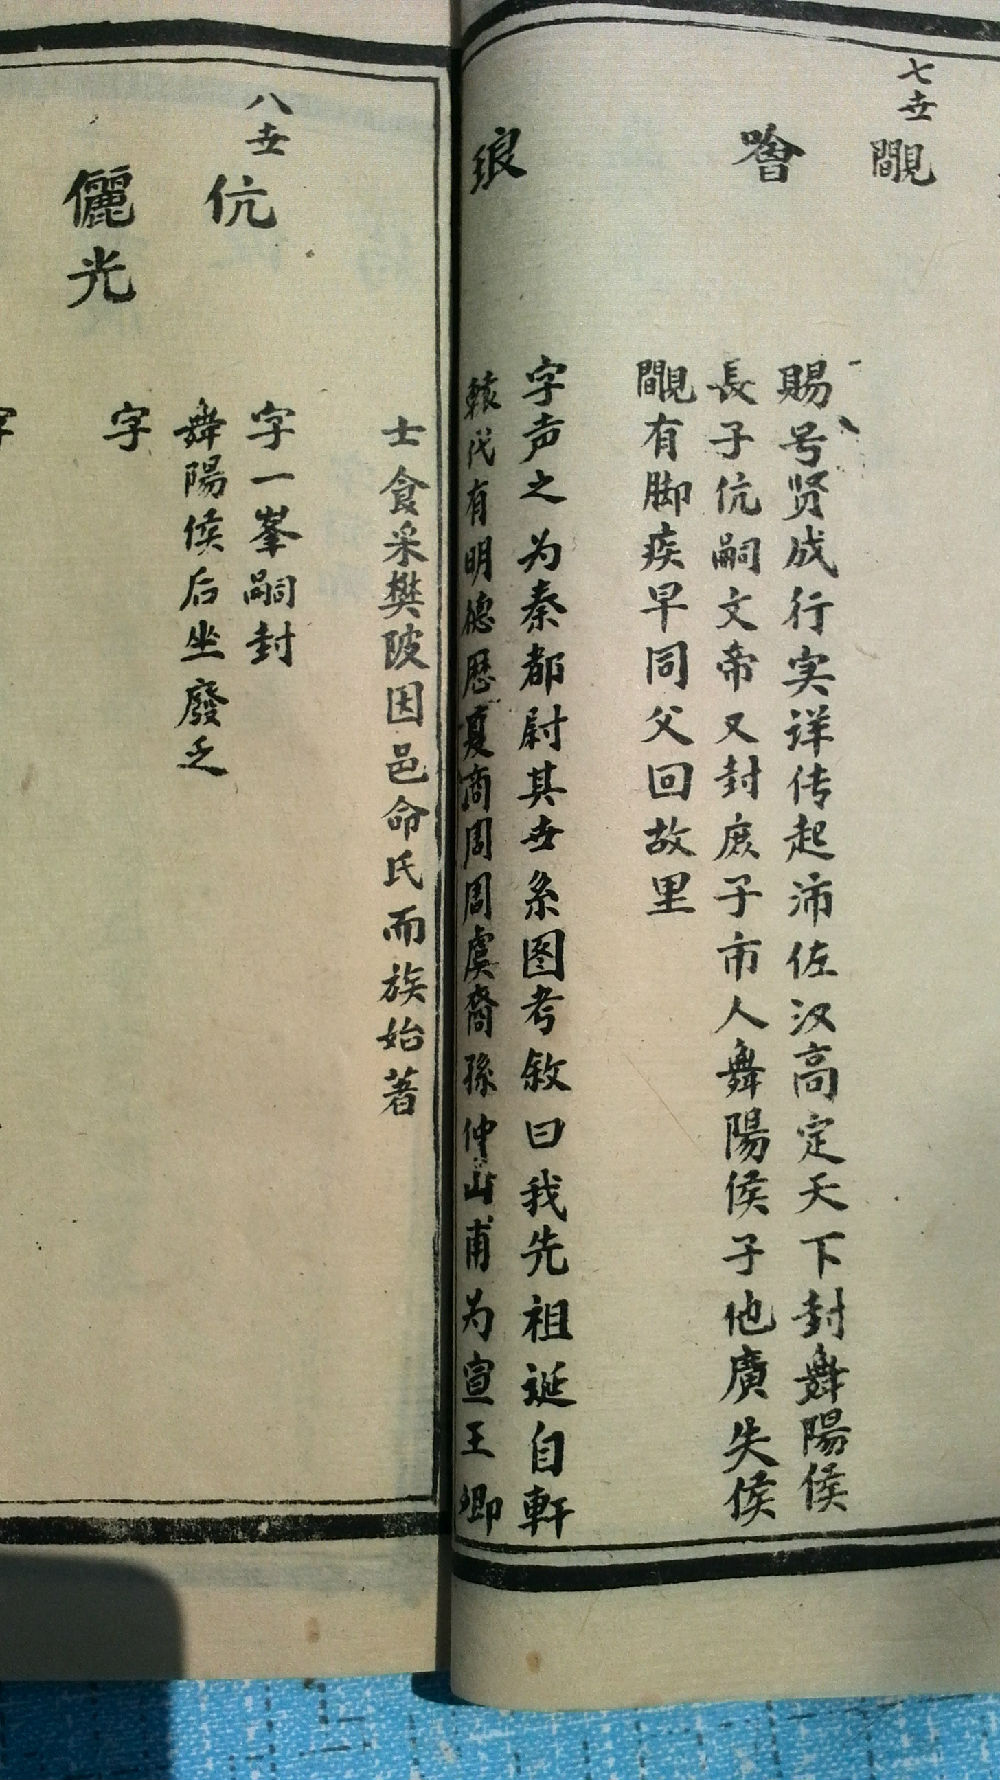 七世
覵
噲
賜号贤成行实详传起沛佐汉高定天下封舞陽侯
長子伉嗣文帝又封庶子市人舞陽侯子他廣失侯
覵有脚疾早同父回故里
琅
字声之为秦都尉其世系图考敘曰我先祖誕自軒
轅代有明德歷夏商周周虞裔孫仲山甫为宣王卿
士食采樊陂因邑命氏而族始著
八世
伉
字一峯嗣封
舞陽侯后坐廢乏
儷光
字
字